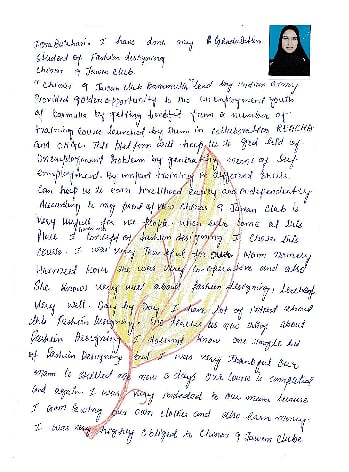 I have done my
Student of Fashion designing
Chinar 9 Jawan Club.
"Chinar 9 Jawan Club Baramulla" lead by Indian Army
Provided golden opportunity to the unemployment youth
of Baramulla by getting benefit from a number of
training course launched by them in collaboration REACHA
and This Platform will help us to get rid of
Unemployment Problem by generating means of Self
employment. By impart training in different skills.
Can help us to earn livelihood easily and independently
According to my point of view Chinar 9 Jawan Club is
very usefull for we people, when I come at this
Place I concept of fashion designing I chosen this
course. I was very Thankful for our Mam namely
She was very co-operative and also
She knows very well about fashion designing,
very well. Day by Day I have lot of about
this Fashion Designing. She teaches us new things about
Fashion Designing. I doesnot know one single bit
of Fashion Designing and I was very Thankful Our
mam is skilled me now a days Our course is completed
and again I was very to our mam because
I am Sewing our own clothes and also earn money.
I was very highly obliged to Chinar 9 Jawan Club